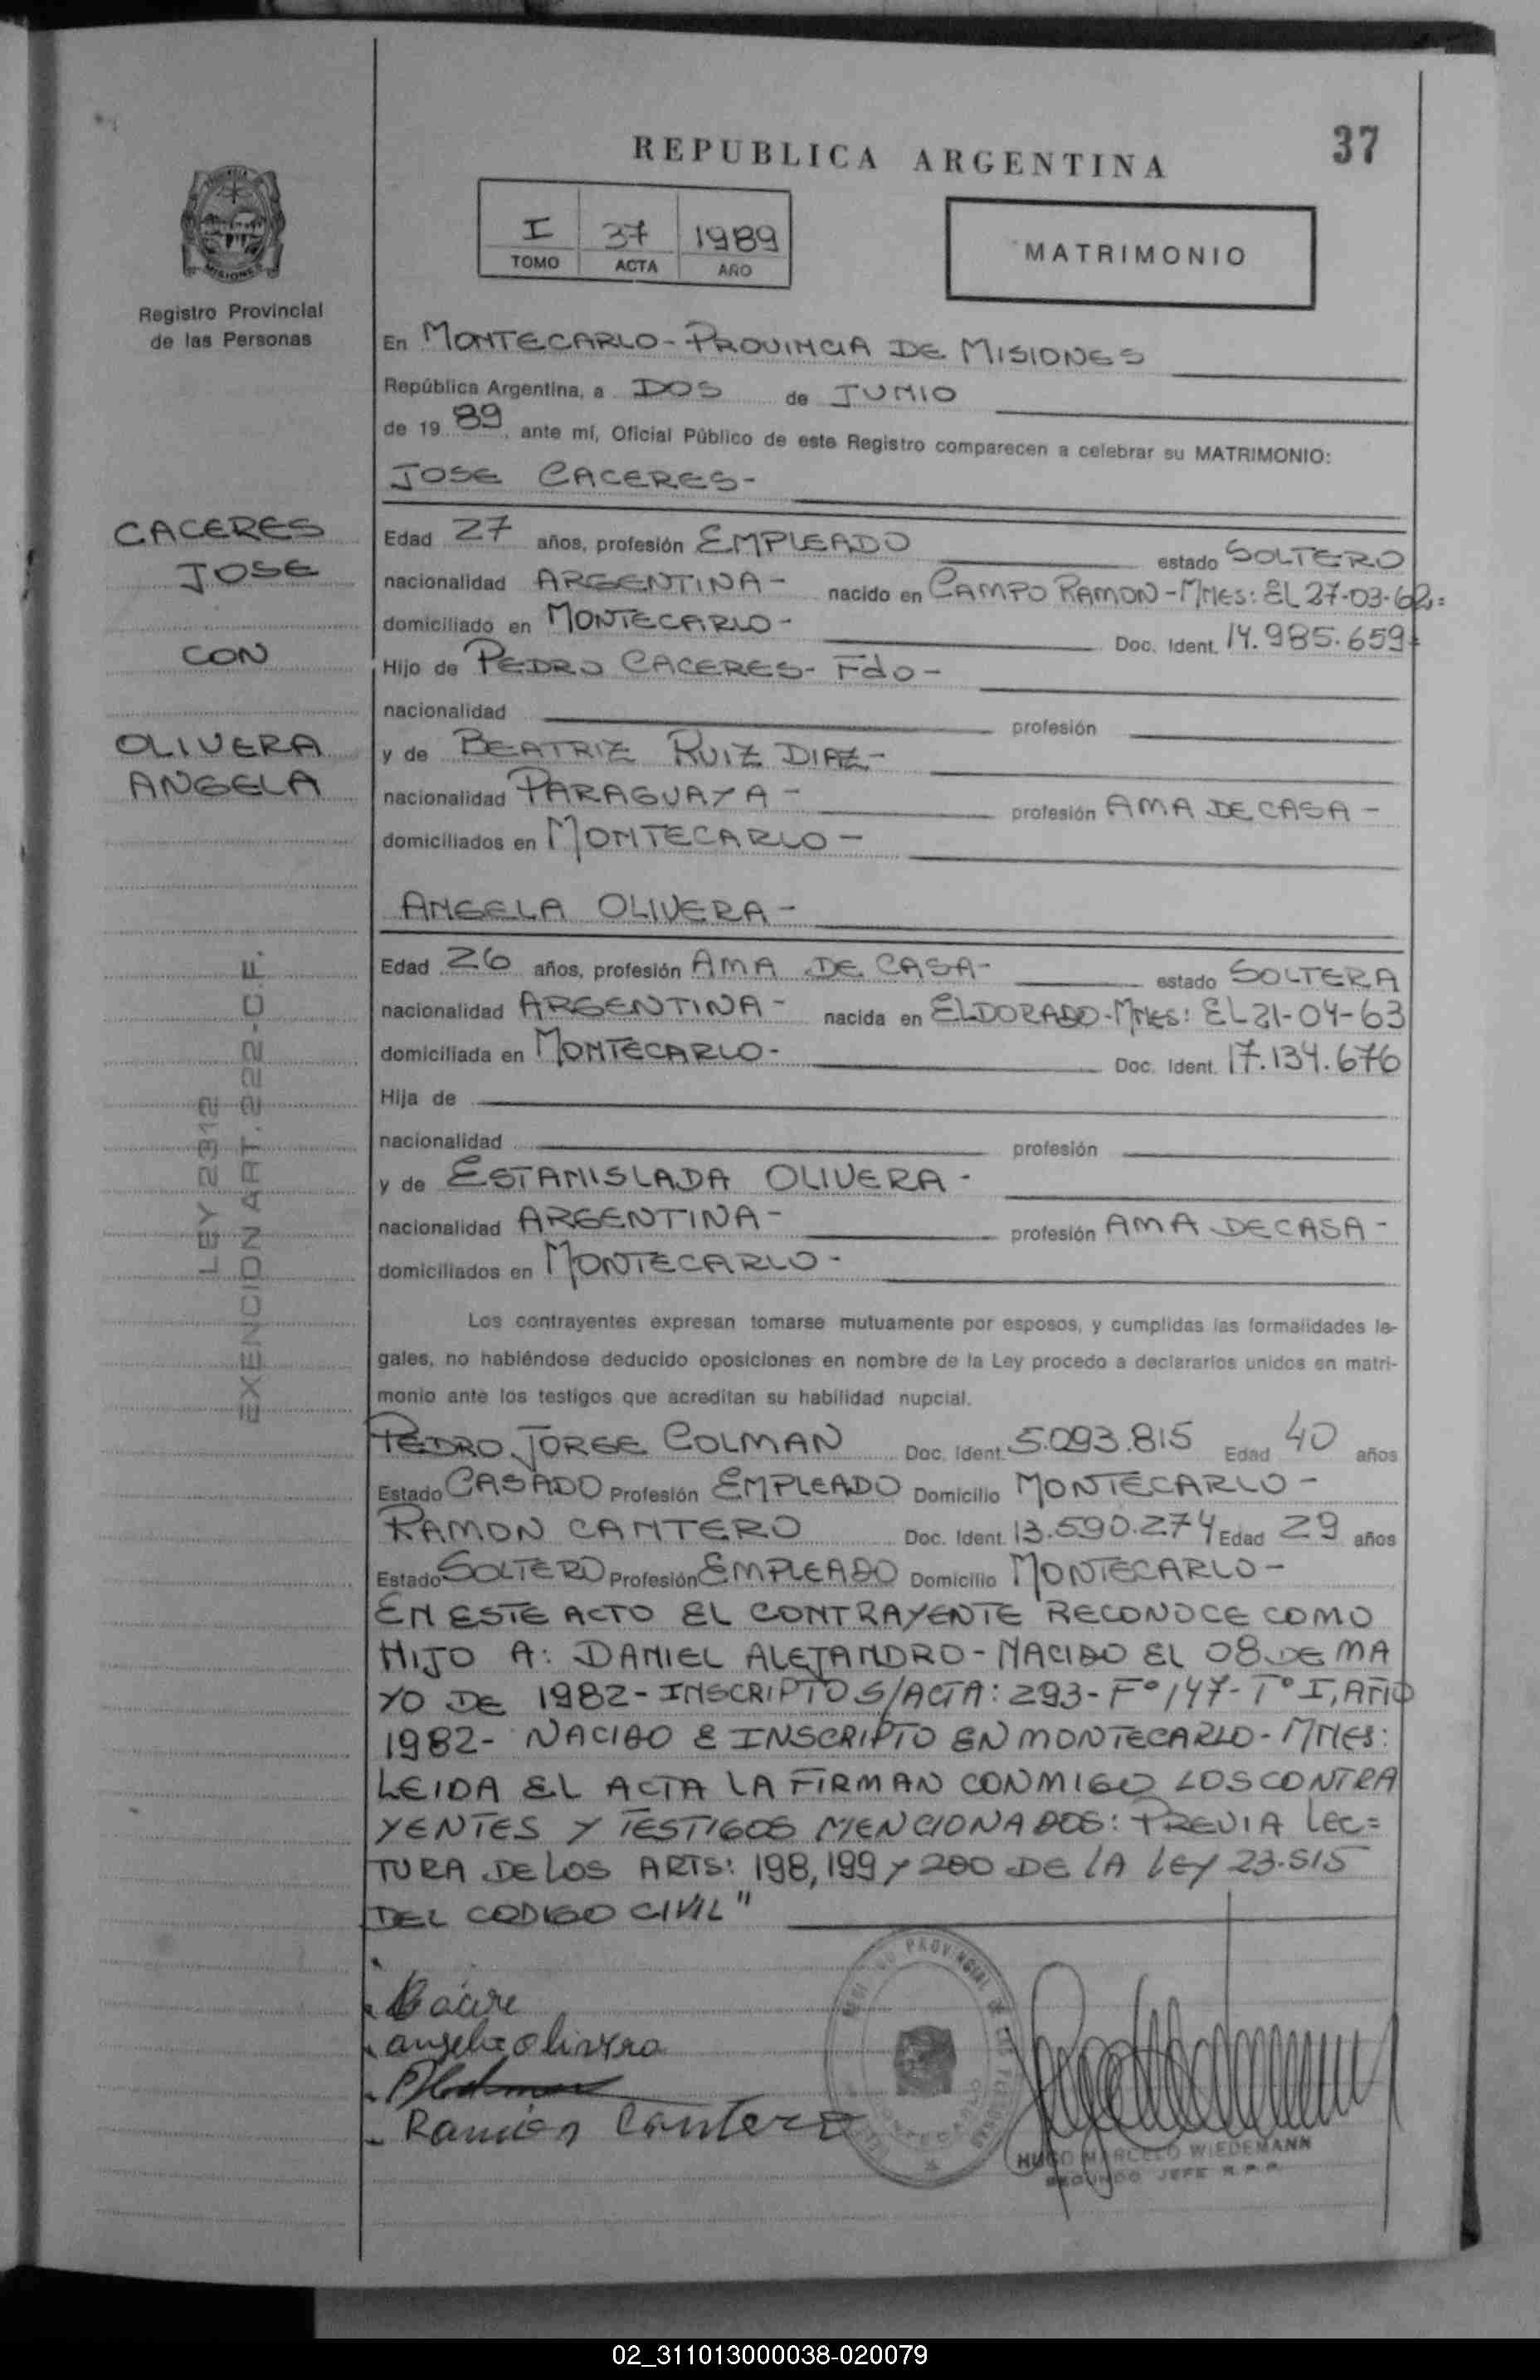 37
REPUBLICA ARGENTINA
I 37 1989
TOMO ACTA AÑO
MATRIMONIO
MISIONES
Registro Provincial
de las Personas
CACERES
JOSE
CON
OLIVERA
ANGELA
LEY 2312
EXENCION ART. 222-C.F.
En MONTECARLO-PROVINCIA DE MISIONES
República Argentina, a DOS de JUNIO
de 1989, ante mí, Oficial Público de este Registro comparecen a celebrar su MATRIMONIO:
JOSE CACERES-
Edad 27 años, profesión EMPLEADO estado SOLTERO
nacionalidad ARGENTINA- nacido en CAMPO RAMON-MNES: EL 27-03-62=
domiciliado en MONTECARLO- Doc. Ident. 14.985.659=
Hijo de PEDRO CACERES- Fdo-
nacionalidad profesión
y de BEATRIZ RUIZ DIAZ-
nacionalidad PARAGUAYA- profesión AMA DE CASA-
domiciliados en MONTECARLO-
ANGELA OLIVERA-
Edad 26 años, profesión AMA DE CASA- estado SOLTERA
nacionalidad ARGENTINA- nacida en ELDORADO-MNES: EL 21-04-63
domiciliada en MONTECARLO- Doc. Ident. 17.134.676
Hija de
nacionalidad profesión
y de ESTANISLADA OLIVERA-
nacionalidad ARGENTINA- profesión AMA DE CASA-
domiciliados en MONTECARLO-
Los contrayentes expresan tomarse mutuamente por esposos, y cumplidas las formalidades le-
gales, no habiéndose deducido oposiciones en nombre de la Ley procedo a declararlos unidos en matri-
monio ante los testigos que acreditan su habilidad nupcial.
PEDRO JORGE COLMAN Doc. Ident. 5.093.815 Edad 40 años
Estado CASADO Profesión EMPLEADO Domicilio MONTECARLO-
RAMON CANTERO Doc. Ident. 13.590.274 Edad 29 años
Estado SOLTERO Profesión EMPLEADO Domicilio MONTECARLO-
EN ESTE ACTO EL CONTRAYENTE RECONOCE COMO
HIJO A: DANIEL ALEJANDRO-NACIDO EL 08 DE MA
YO DE 1982-INSCRIPTO S/ACTA: 293-Fº147-TºI, AÑO
1982- NACIDO E INSCRIPTO EN MONTECARLO-MNES:
LEIDA EL ACTA LA FIRMAN CONMIGO LOS CONTRA
YENTES Y TESTIGOS MENCIONADOS: PREVIA LEC=
TURA DE LOS ARTS: 198, 199 Y 200 DE LA LEY 23.515
DEL CODIGO CIVIL"
angela olivera
Ramón Cantero
HUGO MARCELO WIEDEMANN
SEGUNDO JEFE R.P.P.
02_311013000038-020079